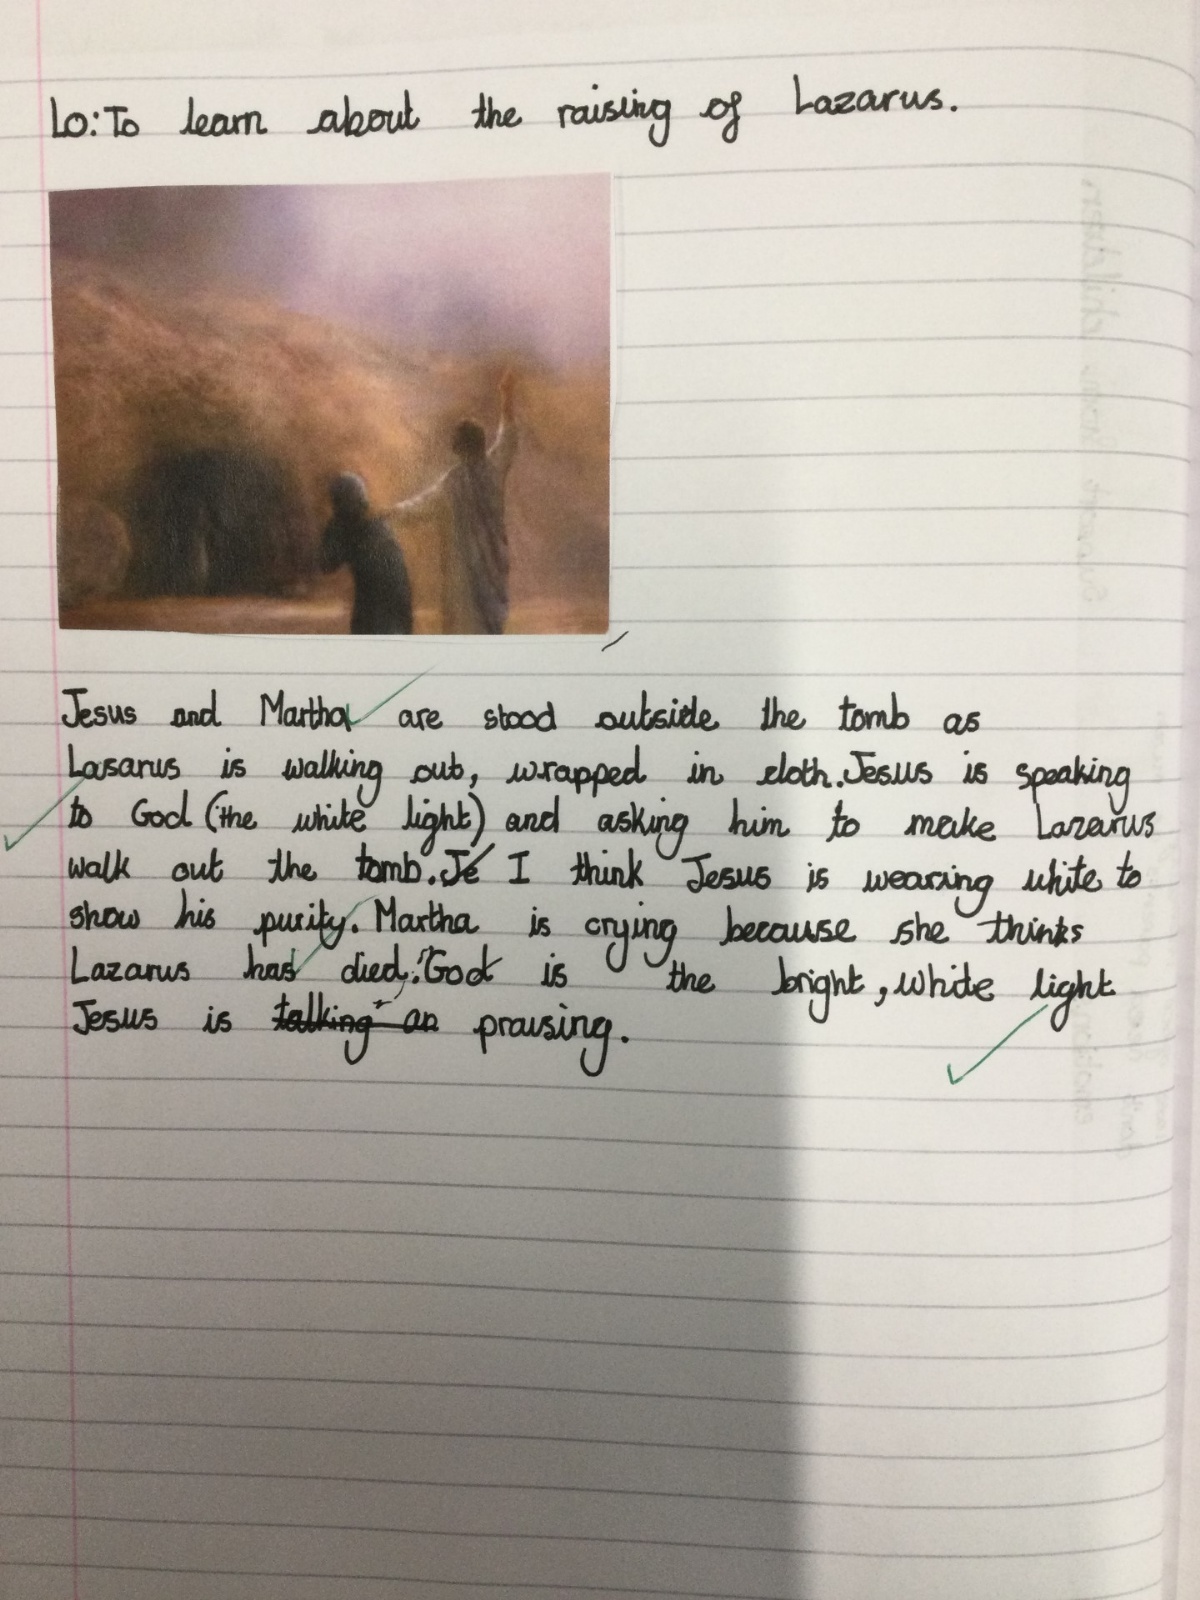 Lo: To learn about the raising of Lazarus.
Jesus and Martha are stood outside the tomb as
Lasarus is walking out, wrapped in cloth. Jesus is speaking
to God (the white light) and asking him to make Lazarus
walk out the tomb. Je I think Jesus is wearing white to
show his purity. Martha is crying because she thinks
Lazarus has died. God is the bright, white light
Jesus is talking an praising.